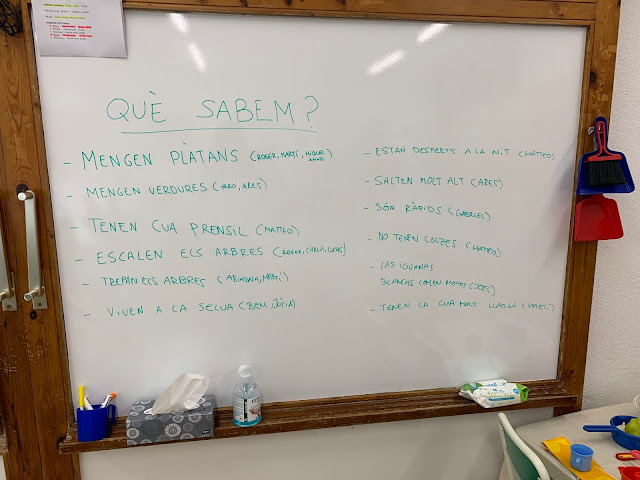 QUÈ SABEM?
- MENGEN PLÀTANS (ROGER, MARTÍ, MIQUEL
- MENGEN VERDURES (ARES)
- TENEN CUA PRENSIL (MATTEO)
- ESCALEN ELS ARBRES (ROGER, CARLA, LUCAS)
- TREPAN ELS ARBRES (ARIADNA, MARTÍ)
- VIUEN A LA SELVA (BENI, JÚLIA)
- ESTAN DESPERTS A LA NIT (MATTEO)
- SALTEN MOLT ALT (ARES)
- SÓN RÀPIDS (GABRIEL)
- NO TENEN COLZES (MATTEO)
- LAS IGUANAS
BLANCAS COMEN MONOS
- TENEN LA CUA MOLT LLARGA (MARTÍ)